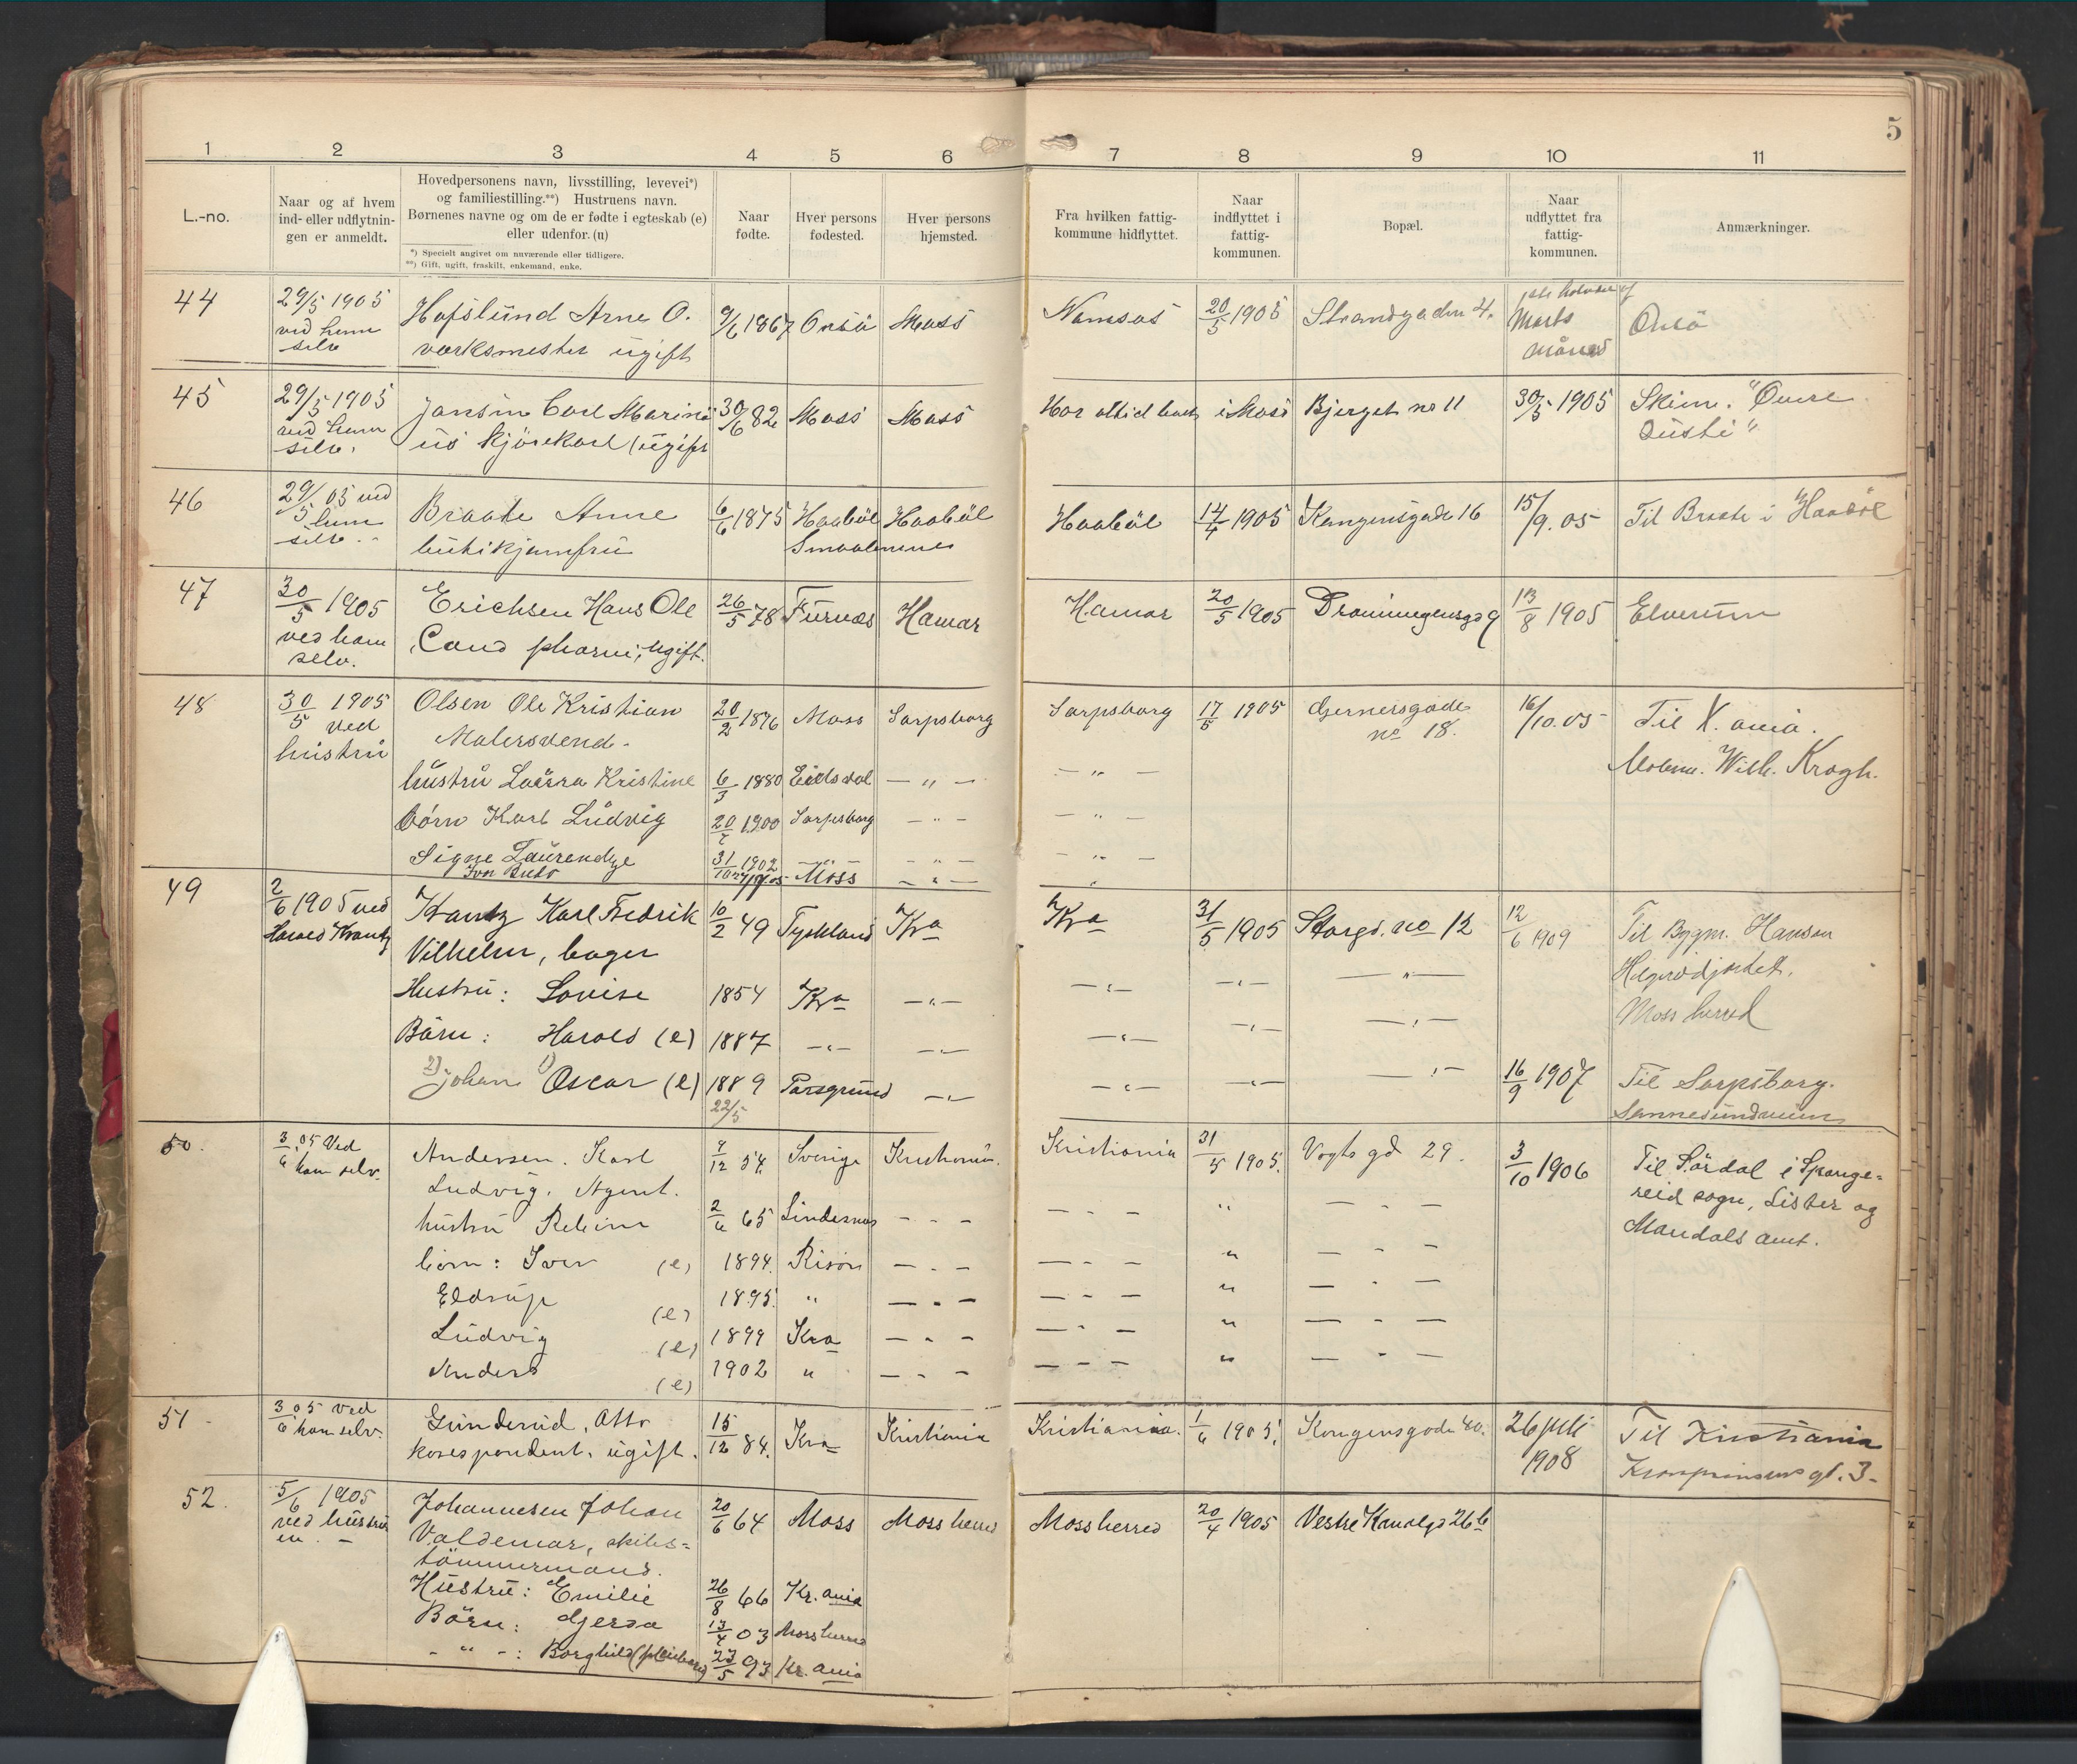 5
1 2 3 4 5 6 7 8 9 10 11
L.-no.
Naar og af hvem
ind- eller udflytnin-
gen er anmeldt.
Hovedpersonens navn, livsstilling, levevei*)
og familiestilling.**) Hustruens navn.
Børnenes navne og om de er fødte i egteskab (e)
eller udenfor. (u)
*) Specielt angivet om nuværende eller tidligere.
**) Gift, ugift, fraskilt, enkemand, enke.
Naar
fødte.
Hver persons
fødested.
Hver persons
hjemsted.
Fra hvilken fattig-
kommune hidflyttet.
Naar
indflyttet i
fattig-
kommunen.
Bopæl.
Naar
udflyttet fra
fattig-
kommunen.
Anmærkninger.
44
29/5 1905
ved ham
selv
Hafslund Arne O.
værksmester ugift
9/6 1867 Onsö Moss
Namsos 20/5 1905 Strandgaden 4.
Marts
måned
Onsö
45
29/5 1905
ved ham
selv.
Jansen Carl Marini
us kjörekarl (ugift
30/6 82 Moss Moss
Har altid boet i Moss Bjerget no 11 30/5 1905
46
29/5 05 ved
ham
selv.
Braate Anne
butikjomfru
6/6 1875 Haaböl Haaböl
Smaalenene
Haaböl 14/4 1905 Kongensgade 16 15/9. 05 Til Braate i Haaböl
47
30/5 1905
ved ham
selv.
Erichsen Hans Ole
Cand pharm, ugift.
26/5 78 Furnæs Hamar
Hamar 20/5 1905 Dronningensgd 9 13/8 1905 Elverum
48
30/5 1905
ved
hustru
Olsen Ole Kristian
Malersvend.
20/2 1876 Moss Sarpsborg
Sarpsborg 17/5 1905 Gernersgade
no 18.
16/10.05 Til X.ania.
Wilh. Krogh.
hustru Laura Kristine 6/3 1880 Eidsvol — „ — — „ —
börn Karl Ludvig 20/7 1900 Sarpsborg — „ — — „ —
Signe 31/10 1902 — „ — — „ — — „ —
Moss — „ — „
49
2/6 1905 ved
Harald Krantz
Krantz Karl Fredrik
Vilhelm, bager
10/2 49 Tyskland Kra
Kra 31/5 1905 Storgd. no 12 12/6 1909 Til Bygm. Hansen
Moss herred
Hustru: Lovise 1854 Kra — „ — — „ — — „ — — „ —
Börn: Harald (e) 1887 — „ — — „ — — „ — — „ — — „ —
2) Johan 1) Oscar (e) 1889 Porsgrund — „ — — „ — — „ — — „ — 16/9 1907 Til Sarpsborg.
22/5
50.
3/6 05 Ved
ham selv.
Andersen. Karl
Ludvig. Agent.
7/12 54. Sverige Kristiania.
Kristiania 31/5 1905. Vogts gd 29. 3/10 1906 Til Sördal i Spange-
reid sogn, Lister og
Mandals amt.
hustru 2/6 65 Lindesnæs - - - — - — „ — - —
börn: Iver (e) 1894. Risör — - — — - — „ — - —
Eldrup (e) 1895. „ — - — — - — „ — - —
Ludvig (e) 1899 Kra — - — — - — „ — - —
Anders (e) 1902 „ — - — — - — „ — - —
51
3/6 05 ved
ham selv.
Gunderud, Otto
korespondent, ugift.
15/12 84. Kra Kristiania
Kristiania. 1/6 1905. Kongensgade 40. 26 juli
1908
Til Kristiania
Kronprinsens gt. 3
52.
5/6 1905
ved hustru
en. —
Johannesen Johan
Valdemar, skibs=
tömmermand.
20/6 64 Moss Moss herred
Moss herred 20/4 1905 Vestre Kanalgd 26 b
Hustru: Emilie 26/8 66 Kr.ania
Börn: Gjerda 13/4 03 Moss herred
- „ -: Borghild (pleiebarn) 23/5 93 Kr.ania